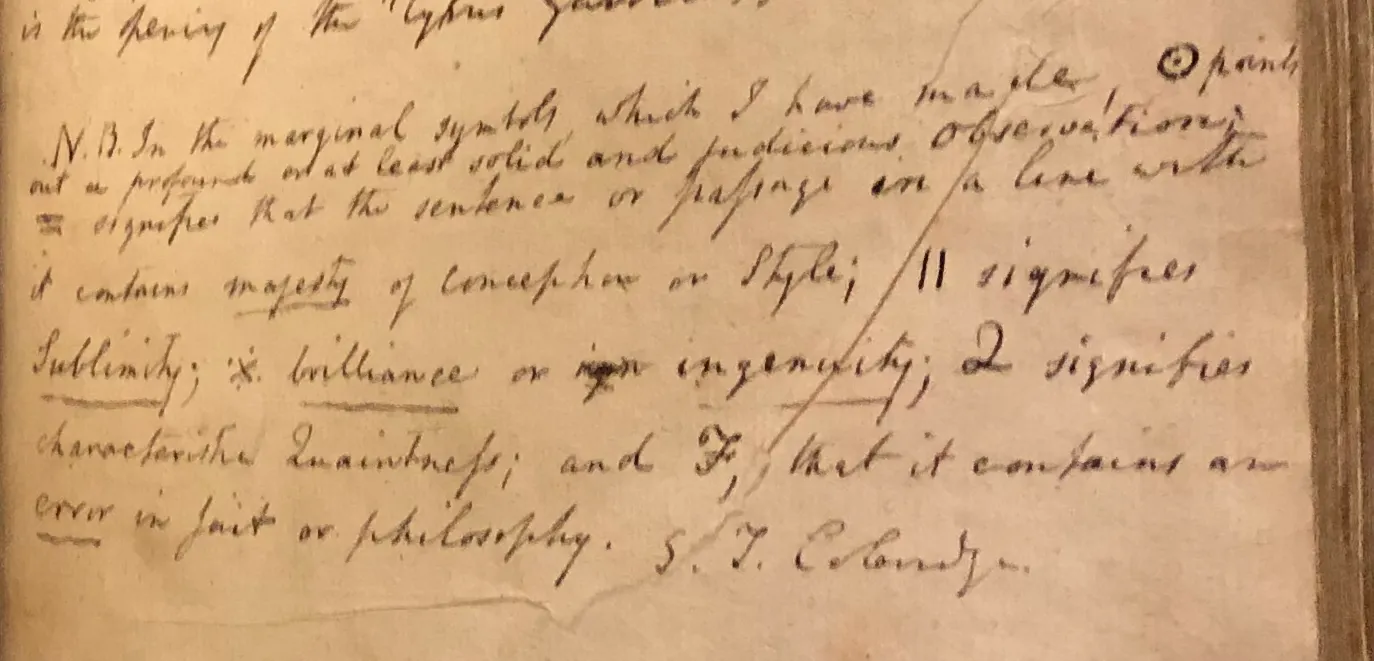 is the opening of the Cyprus Garden
N.B. In the marginal symbols, which I have made, ☉ points
out a profound or at least solid and judicious observation;
= signifies that the sentence or passage in a line with
it contains majesty of Conception or Style; || signifies
Sublimity; ※ brilliance or ingenuity; Q signifies
characteristic Quaintness; and F, that it contains an
error in fact or philosophy. S. T. Coleridge.